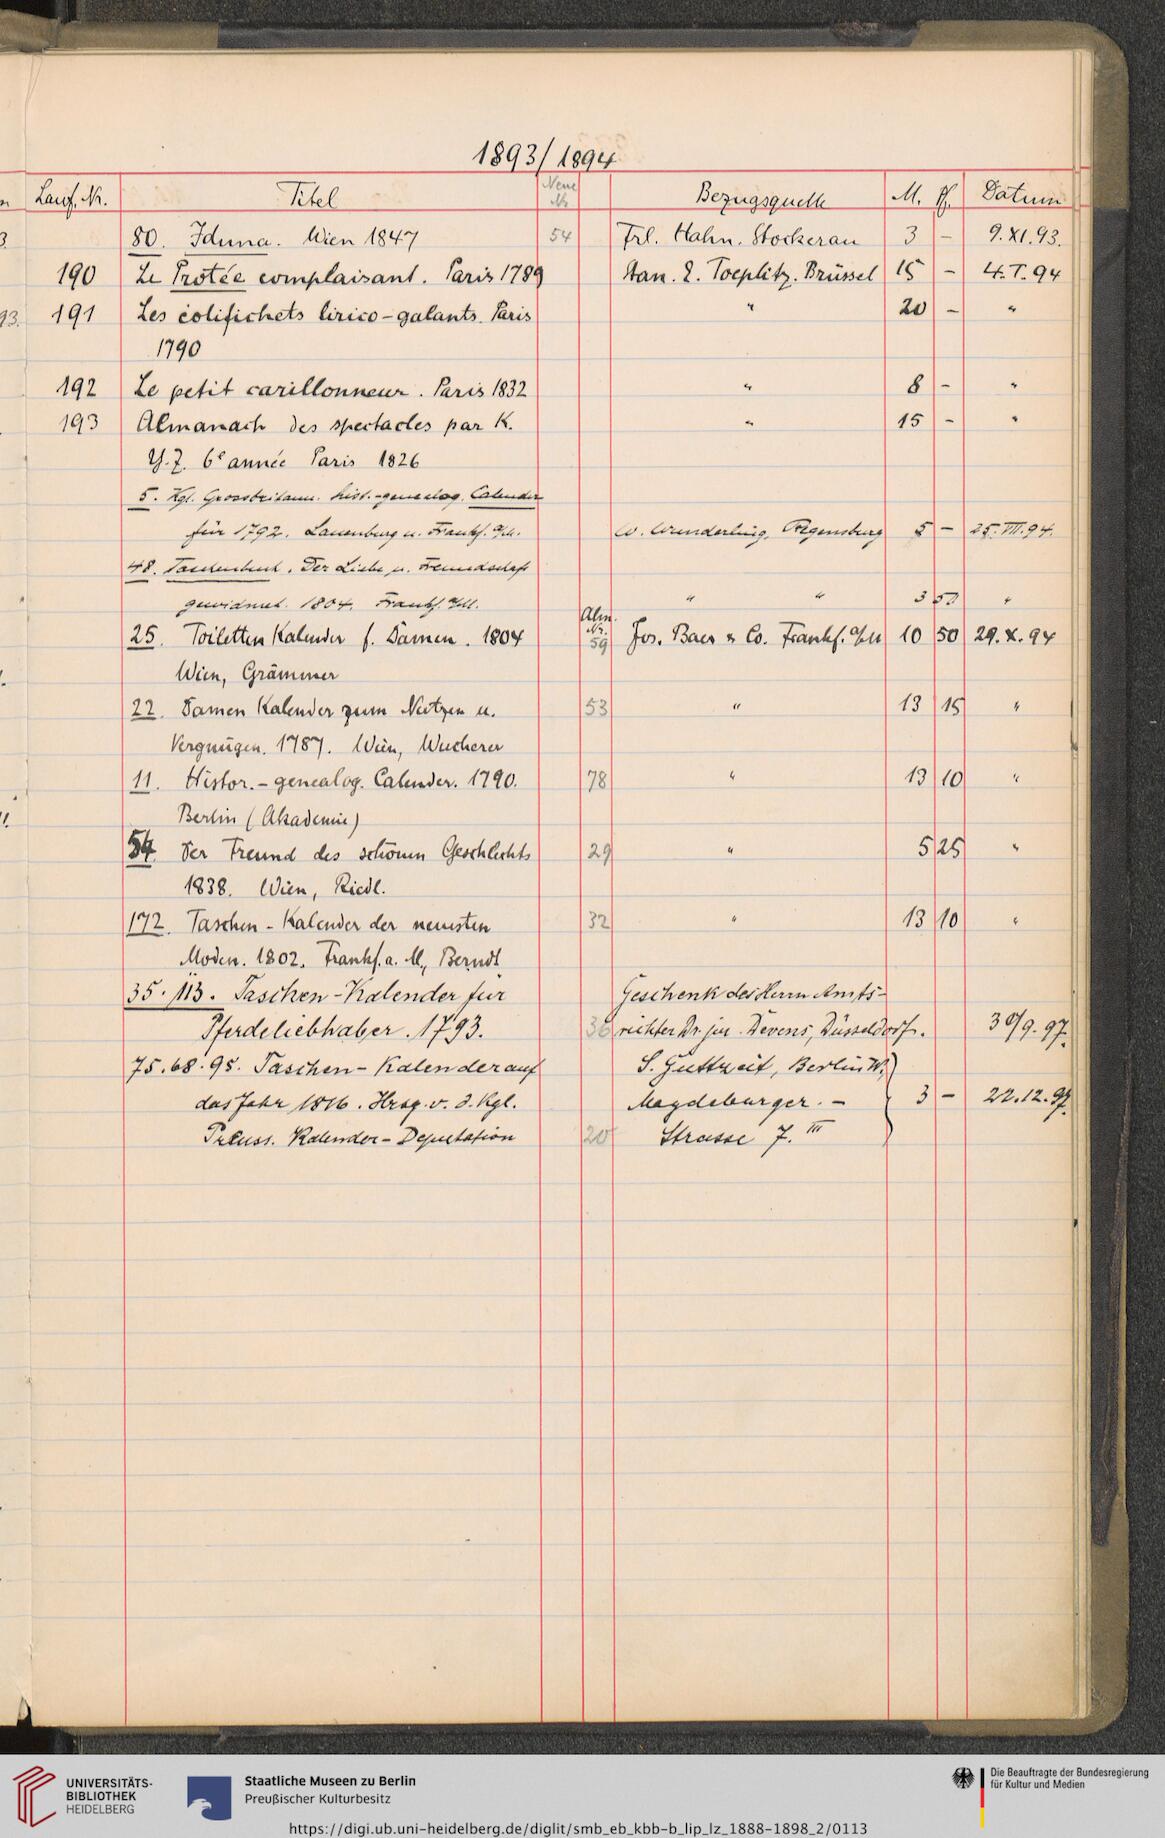 1893/1894
Lauf. Nr. Titel Neue Nr. Bezugsquelle M. Pf. Datum
80. Iduna. Wien 1847 54 Frl. Hahn. Stockerau 3 – 9.XI.93.
190 Le Protée complaisant. Paris 1789 Toeplitz. Brüssel 15 – 4.I.94
191 Les colifichets lirico-galants. Paris " 20 – "
1790
192 Le petit carillonneur. Paris 1832 " 8 – "
193 Almanach des spectacles par K. " 15 – "
Y. Z. 6e année Paris 1826
5. Kgl. Grossbritann. hist.-genealog. Calender
für 1792. Lauenburg u. Frankf. a/M. W. Wunderling, Regensburg 5 – 25.VII.94.
48. Taschenbuch. Der Liebe u. Freundschaft
gewidmet. 1804. Frankf. a/M. " " 3 50 "
Alm. Nr.
25. Toiletten Kalender f. Damen. 1804 59 Jos. Baer & Co. Frankf. a/M 10 50 29.X.94
Wien, Grämmer
22. Damen Kalender zum Nutzen u. 53 " 13 15 "
Vergnügen. 1787. Wien, Wucherer
11. Histor.-genealog. Calender. 1790. 78 " 13 10 "
Berlin (Akademie)
54. Der Freund des schönen Geschlechts 29 " 5 25 "
1838. Wien, Riedl.
172. Taschen-Kalender der neuesten 32 " 13 10 "
Moden. 1802. Frankf. a. M., Berndt
35. 113. Taschen-Kalender für Geschenk des Herrn Amts-
Pferdeliebhaber. 1793. 36 richter Dr. jur. Devens, Düsseldorf. 30/9.97.
75.68.95. Taschen-Kalender auf S. Guttzeit, Berlin W.,
das Jahr 1816. Hrsg. v. d. Kgl. Magdeburger.- 3 – 22.12.97.
Preuss. Kalender-Deputation 20 Strasse 7. III
UNIVERSITÄTS-
BIBLIOTHEK
HEIDELBERG
Staatliche Museen zu Berlin
Preußischer Kulturbesitz
Die Beauftragte der Bundesregierung
für Kultur und Medien
https://digi.ub.uni-heidelberg.de/diglit/smb_eb_kbb-b_lip_lz_1888-1898_2/0113